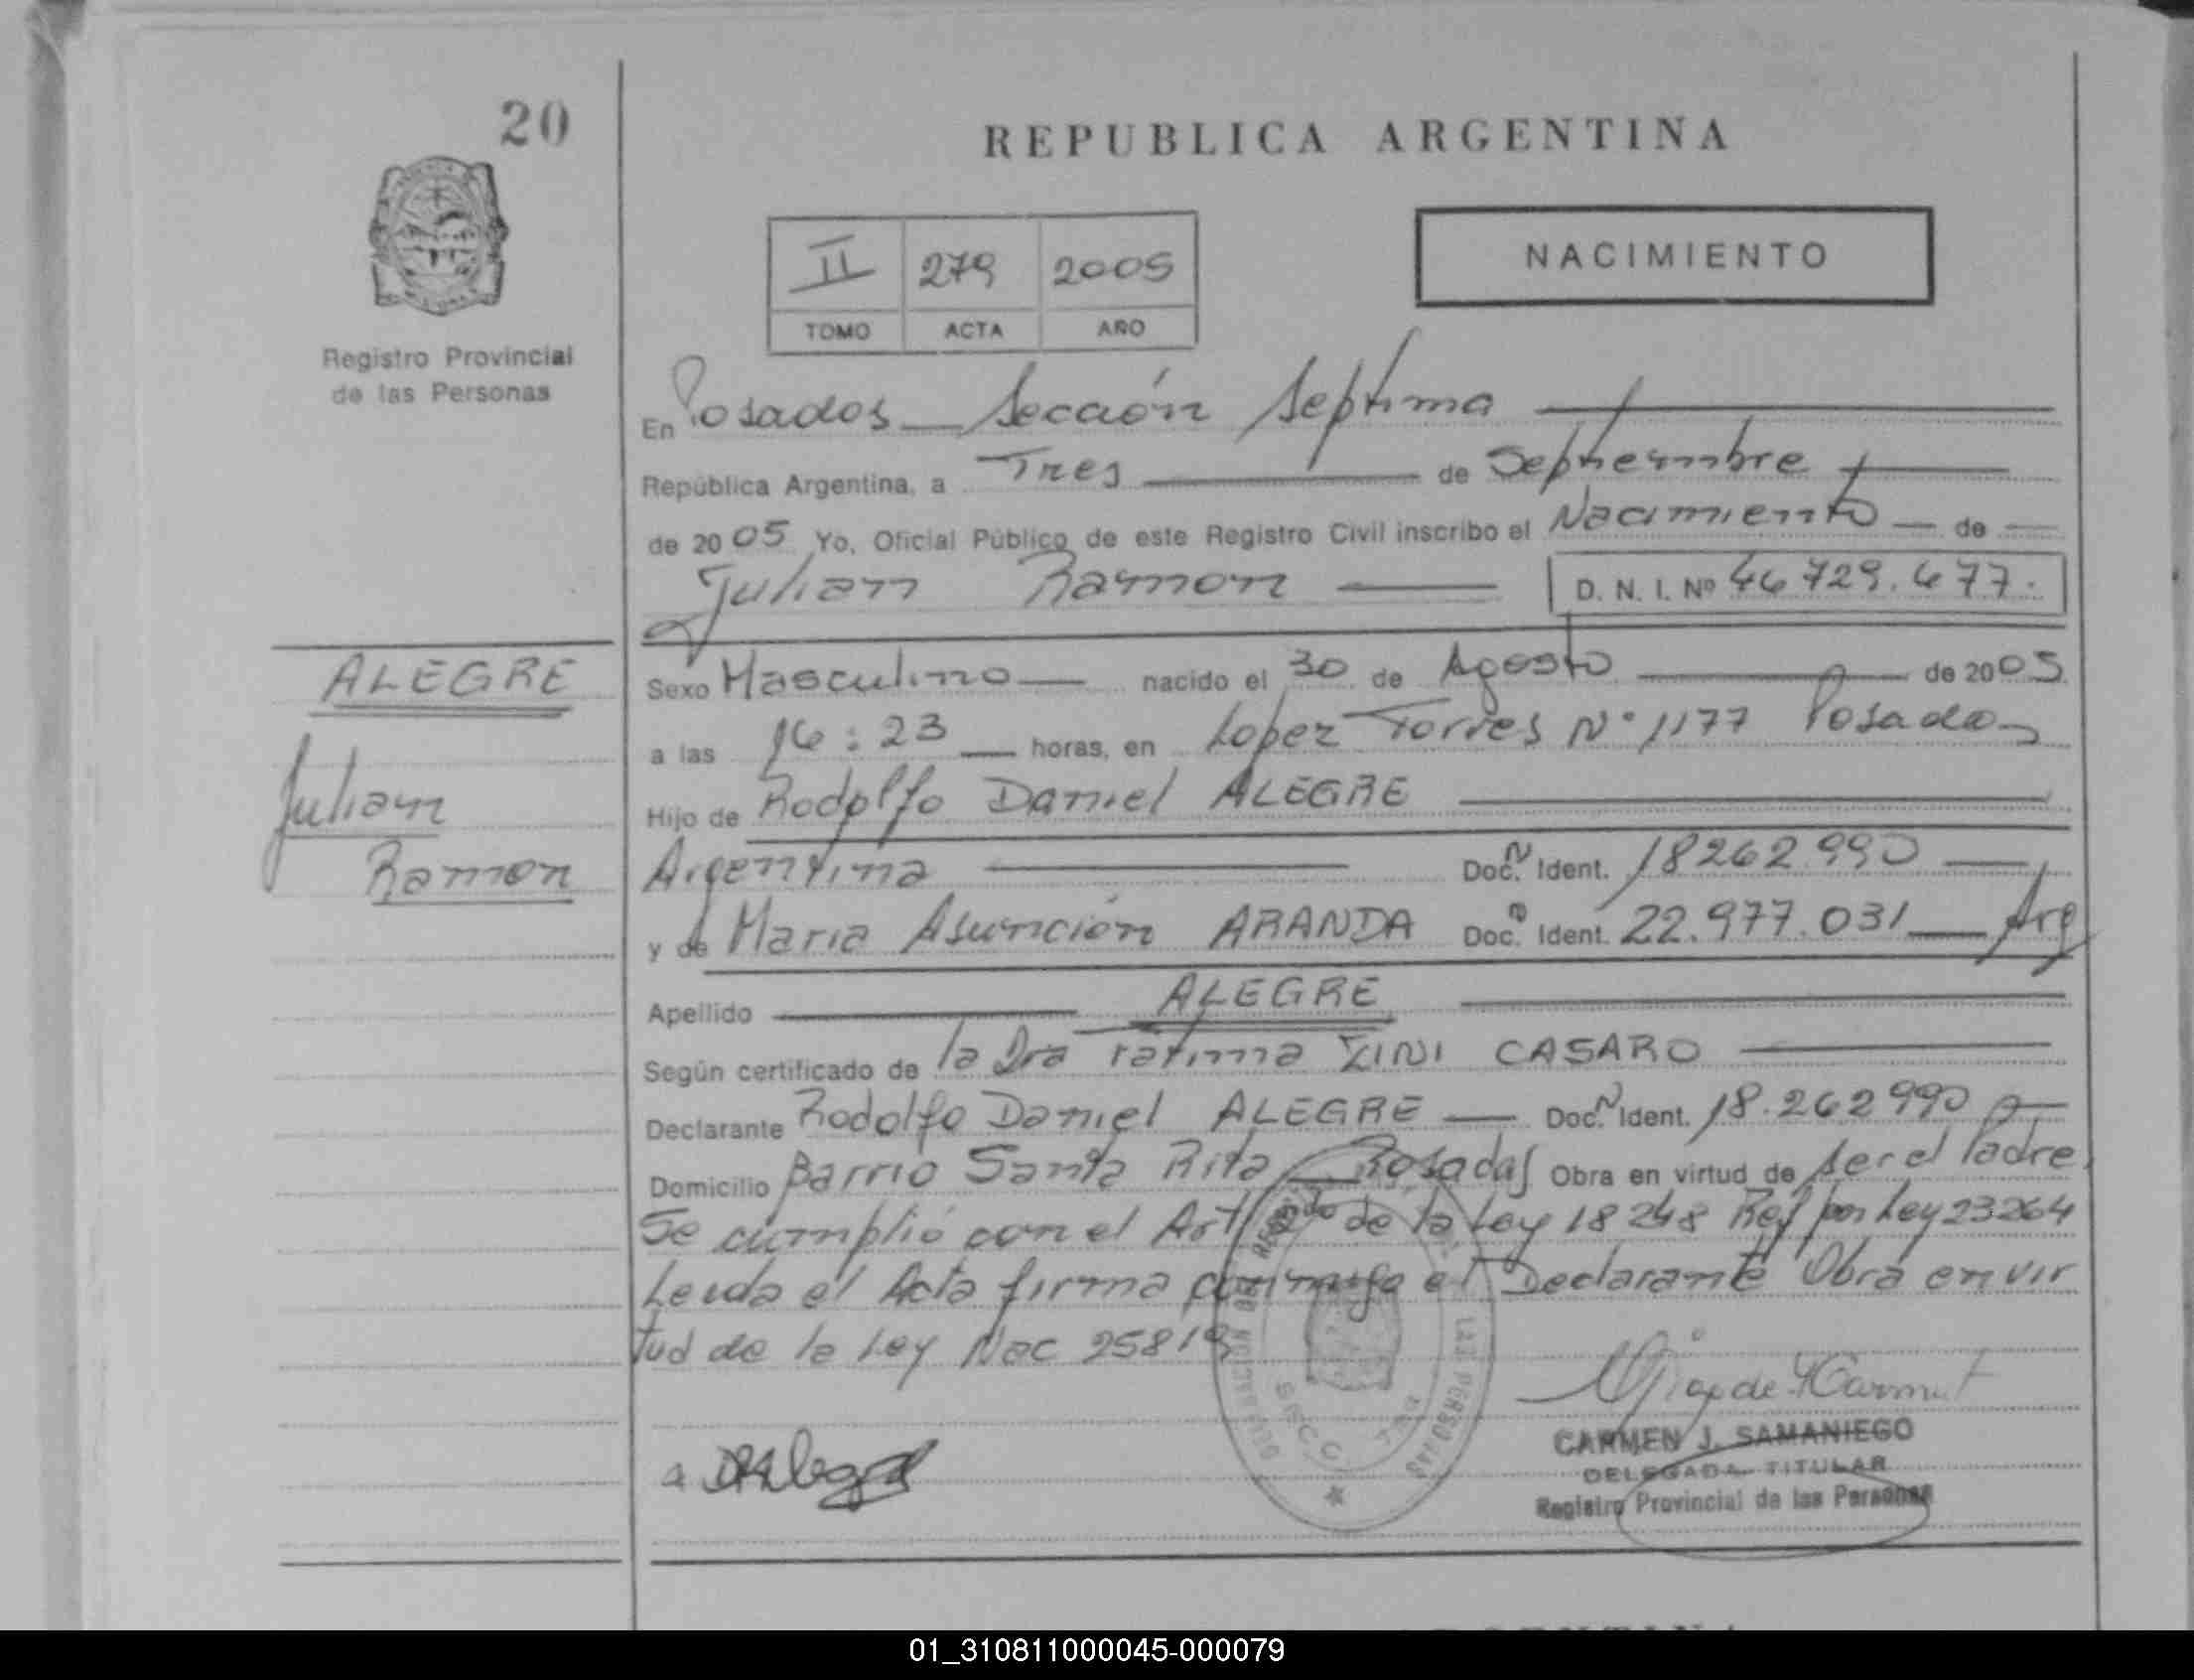 20
REPUBLICA ARGENTINA
NACIMIENTO
II 279 2005
TOMO ACTA AÑO
Registro Provincial
de las Personas
En Posadas Sección Septima
República Argentina, a Tres de Septiembre
de 2005 Yo, Oficial Público de este Registro Civil inscribo el Nacimiento de
Julian Ramon D. N. I. Nº 46 729.677.
ALEGRE
Julian
Ramon
Sexo Masculino nacido el 30 de Agosto de 2005
a las 16:23 horas, en Lopez Torres Nº 1177 Posadas
Hijo de Rodolfo Daniel ALEGRE
Argentina Doc. Ident. 18262990
y de Maria Asunción ARANDA Doc. Ident. 22.977.031 Arg
Apellido ALEGRE
Según certificado de la Dra Fatima ZINI CASARO
Declarante Rodolfo Daniel ALEGRE Doc. Ident. 18.262990
Domicilio Barrio Santa Rita Posadas Obra en virtud de ser el Padre
Se cumplió con el Art de la Ley 18248 Ref por Ley 23264
Leida el Acta firma conmigo el Declarante Obra en vir
tud de la Ley Nac 25819
CARMEN J. SAMANIEGO
DELEGADA TITULAR
Registro Provincial de las Personas
01_310811000045-000079